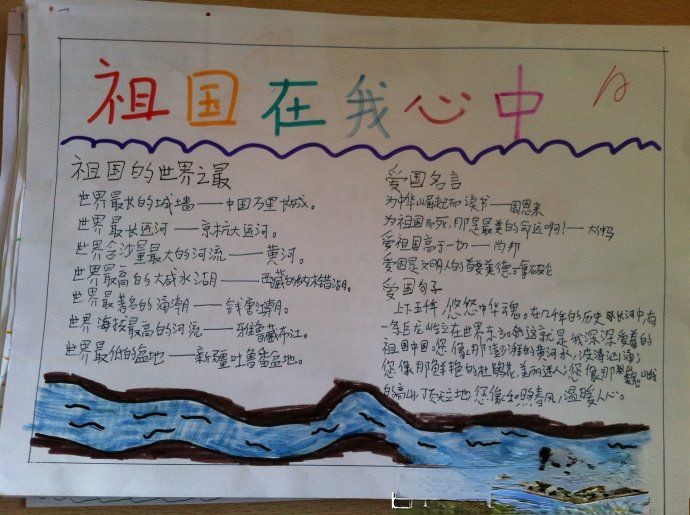 祖国在我心中
A
祖国的世界之最
世界最长的城墙——中国万里长城。
世界最长运河——京杭大运河。
世界含沙量最大的河流——黄河。
世界最高的大咸水湖——西藏的纳木错湖。
世界最著名的涌潮——钱塘江潮。
世界海拔最高的河流——雅鲁藏布江。
世界最低的盆地——新疆吐鲁番盆地。
爱国名言
为中华崛起而读书——周恩来
为祖国而死,那是最美的命运啊!——大仲马
爱祖国高于一切——肖邦
爱国是文明人的首要美德——拿破仑
爱国句子
上下五千年,悠悠中华魂。在几千年的历史长河中,有
一条巨龙屹立在世界东方,这就是我深深爱着的
祖国中国。您像那澎湃的黄河水,波涛汹涌;
您像那鲜艳的杜鹃花,美丽迷人;您像那巍峨
的高山,顶天立地;您像和煦春风,温暖人心。